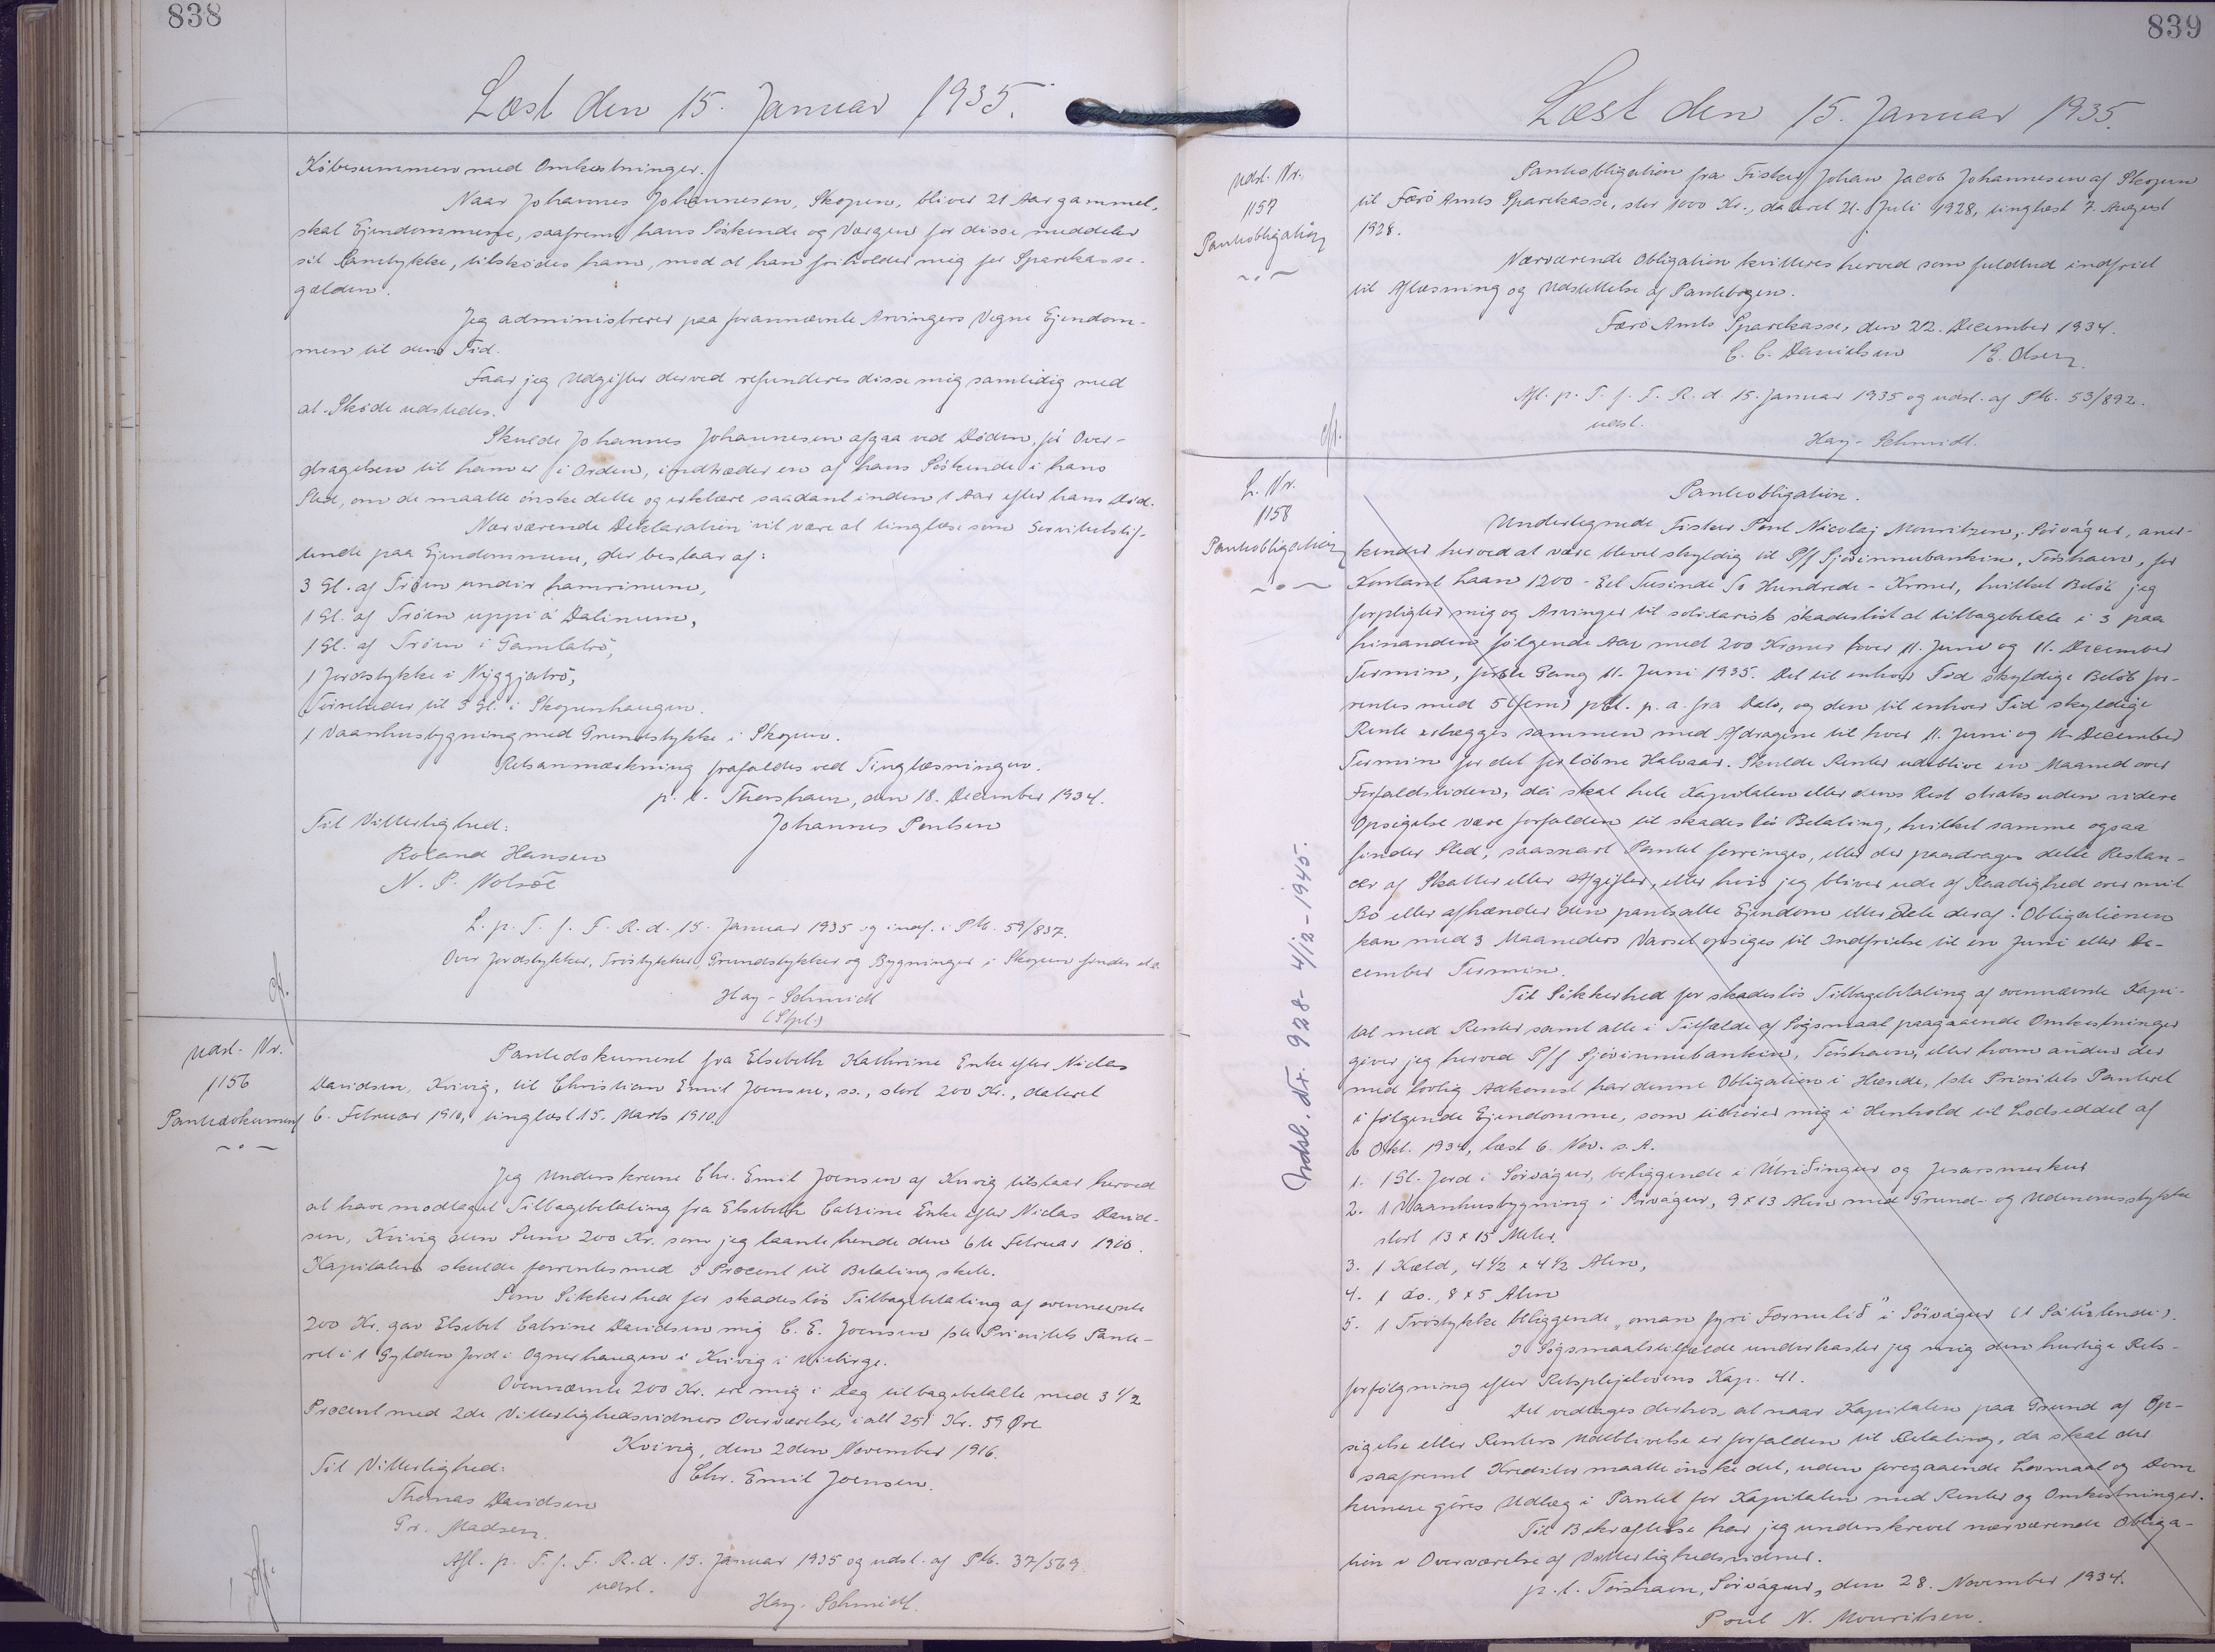 838
Læst den 15. Januar 1935.
Købesummen med Omkostninger.
Naar Johannes Johannesen, Skopun, bliver 21 Aar gammel,
skal Ejendommene, saafremt hans Söskende og Værger for disse meddeler
sit Samtykke, tilskødes ham, mod at han friholder mig for Sparekasse-
gælden.
Jeg administrerer paa forannævnte Arvingers Vegne Ejendom-
men til den Tid.
Faar jeg Udgifter derved refunderes disse mig samtidig med
at Skøde udstedes.
Skulde Johannes Johannesen afgaa ved Döden, för Over-
dragelsen til ham er i Orden, indtræder en af hans Söskende i hans
Sted, om de maatte önske dette og erklære saadant inden 1 Aar efter hans Död.
Nærværende Deklaration vil være at tinglæse som Servitutstif-
tende paa Ejendommene, der bestaar af:
3 Gl. af Tröen undir hamrinum,
1 Gl. af Tröen uppi á Dalinum,
1 Gl. af Tröen i Gamlatrö,
1 Jordstykke i Nýggjatrö,
Törvelader til 3 Gl. i Skopunhaugen.
1 Vaanhusbygning med Grundstykke i Skopun.
Retsanmærkning frafaldes ved Tinglæsningen.
p. t. Thorshavn, den 18. December 1934.
Til Vitterlighed: Johannes Poulsen
Roland Hansen
N. P. Nolsöe
L. p. T. f. F. R. d. 15. Januar 1935 og indf. i Ptb. 59/837.
Over Jordstykker, Tröstykker, Grundstykker og Bygninger i Skopun findes ei
Hay-Schmidt
(Stpl.)
Udsl. Nr.
1156
Pantedokument
Pantedokument fra Elsebeth Kathrine Enke efter Niclas
Davidsen, Kvivig, til Christian Emil Joensen, ss., stort 200 Kr., dateret
6. Februar 1910, tinglæst 15. Marts 1910.
Jeg Underskrevne Chr. Emil Joensen af Kvivig tilstaar herved
at have modtaget Tilbagebetaling fra Elsebeth Catrine Enke efter Niclas David-
sen, Kvivig den Sum 200 Kr. som jeg laante hende den 6te Februar 1910.
Kapitalen skulde forrentes med 5 Procent til Betaling skete.
Som Sikkerhed for skadeslös Tilbagebetaling af ovennævnte
200 Kr. gav Elsebet Catrine Davidsen mig C. E. Joensen 1ste Prioritets Pante-
ret i 1 Gylden Jord i Ognerhaugen i Kvivig i
Ovennævnte 200 Kr. ere mig i Dag tilbagebetalte med 3 1/2
Procent med 2de Vitterlighedsvidners Overværelse, i alt 251 Kr. 59 Øre
Kvivig, den 2den November 1916.
Til Vitterlighed: Chr. Emil Joensen.
Thomas Davidsen
Gr. Madsen.
Afl. p. T. f. F. R. d. 15. Januar 1935 og udsl. af Ptb. 37/569.
udsl.
Hay-Schmidt.
839
Læst den 15. Januar 1935.
Udsl. Nr.
1157
Panteobligation
Panteobligation fra Fisker Johan Jacob Johannesen af Skopun
til Færö Amts Sparekasse, stor 1000 Kr., dateret 21. Juli 1928, tinglæst 7. August
1928.
Nærværende Obligation kvitteres herved som fuldtud indfriet
til Aflæsning og Udslettelse af Pantebogen.
Færö Amts Sparekasse, den 22. December 1934.
C. C. Danielsen / E. Olsen
Afl. p. T. f. F. R. d. 15. Januar 1935 og udsl. af Ptb. 53/892.
udsl.
Hay-Schmidt.
L. Nr.
1158
Panteobligation
Panteobligation.
Undertegnede Fisker Poul Nicolaj Mouritzen, Sörvágur, aner-
kender herved at være blevet skyldig til P/f Sjóvinnubankin, Tórshavn, for
Kontant Laan 1200 - Eet Tusinde To Hundrede - Kroner, hvilket Belöb jeg
forpligter mig og Arvinger til solidarisk skadeslöst at tilbagebetale i 3 paa
hinanden fölgende Aar med 200 Kroner hver 11. Juni og 11. December
Termin, förste Gang 11. Juni 1935. Det til enhver Tid skyldige Belöb for-
rentes med 5 (fem) pCt. p. a. fra Dato, og den til enhver Tid skyldige
Rente erlægges sammen med Afdragene til hver 11. Juni og 11. December
Termin for det forlöbne Halvaar. Skulde Renter udeblive en Maaned over
Forfaldstiden, da skal hele Kapitalen eller dens Rest straks uden videre
Opsigelse være forfalden til skadeslös Betaling, hvilket samme ogsaa
finder Sted, saasnart Pantet forringes, eller der paadrages dette Restan-
cer af Skatter eller Afgifter, eller hvis jeg bliver ude af Raadighed over mit
Bo eller afhænder den pantsatte Ejendom eller Dele deraf. Obligationen
kan med 3 Maaneders Varsel opsiges til Indfrielse til en Juni eller De-
cember Termin.
Til Sikkerhed for skadeslös Tilbagebetaling af ovennævnte Kapi-
tal med Renter samt alle i Tilfælde af Sögsmaal paagaaende Omkostninger
giver jeg herved P/f Sjóvinnubankin, Tórshavn, eller hvem anden der
med lovlig Adkomst har denne Obligation i Hænde, 1ste Prioritets Panteret
i fölgende Ejendomme, som tilhörer mig i Henhold til Lodseddel af
6 Okt. 1934, læst 6. Nov. s. A.
1. 1 Gl. Jord i Sörvágur, beliggende i Útriðingur og Jesarsmerkur
2. 1 Vaanhusbygning i Sörvágur, 9 x 13 Alen med Grund- og Udenomsstykke
stort 13 x 15 Meter.
3. 1 Kæld, 4 1/2 x 4 1/2 Alen,
4. 1 do., 8 x 5 Alen
5. 1 Tröstykke beliggende "oman fyri Formulið" i Sörvágur (1 )
I Sögsmaalstilfælde underkaster jeg mig den hurtige Rets-
forfölgning efter Retsplejelovens Kap. 41.
Det vedtages derhos, at naar Kapitalen paa Grund af Op-
sigelse eller Renters Udeblivelse er forfalden til Betaling, da skal der
saafremt Kreditor maatte önske det, uden foregaaende Lovmaal og Dom
kunne göres Udlæg i Pantet for Kapitalen med Renter og Omkostninger.
Til Bekræftelse har jeg underskrevet nærværende Obliga-
tion i Overværelse af Vitterlighedsvidner.
p. t. Tórshavn, Sörvágur, den 28. November 1934.
Poul N. Mouritsen.
Udsl. Nr. 928 - 4/12-1945.